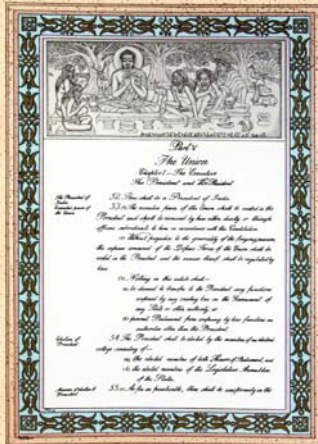 Part V
The Union
Chapter I — The Executive
The President and Vice-President
The President of India.
52. There shall be a President of India.
Executive power of the Union.
53. (1) The executive power of the Union shall be vested in the
President and shall be exercised by him either directly or through
officers subordinate to him in accordance with this Constitution.
(2) Without prejudice to the generality of the foregoing provision,
the supreme command of the Defence Forces of the Union shall be
vested in the President and the exercise thereof shall be regulated by
law.
(3) Nothing in this article shall—
(a) be deemed to transfer to the President any functions
conferred by any existing law on the Government of
any State or other authority; or
(b) prevent Parliament from conferring by law functions on
authorities other than the President.
Election of President.
54. The President shall be elected by the members of an electoral
college consisting of—
(a) the elected members of both Houses of Parliament; and
(b) the elected members of the Legislative Assemblies
of the States.
Manner of election of President.
55. (1) As far as practicable, there shall be uniformity in the